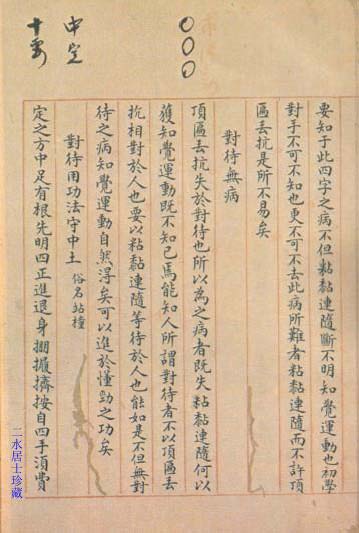 要知于此四字之病不但粘黏連隨斷不明知覺運動也初學
對手不可不知也更不可不去此病所難者粘黏連隨而不許頂
匾丢抗是所不易矣
對待無病
頂匾丢抗失於對待也所以為之病者既失粘黏連隨何以
獲知覺運動既不知己焉能知人所謂對待者不以頂匾丢
抗相對於人也要以粘黏連隨等待於人也能如是不但無對
待之病知覺運動自然得矣可以進於懂勁之功矣
中定
對待用功法守中土 俗名站橦
定之方中足有根先明四正進退身掤攦擠按自四手須費
二水居士珍藏